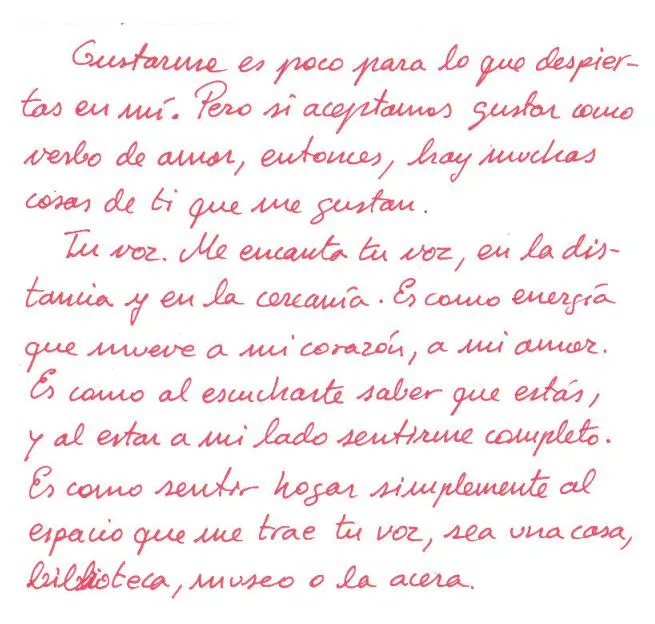 Gustarme es poco para lo que despier-
tas en mí. Pero si aceptamos gustar como
verbo de amor, entonces, hay muchas
cosas de ti que me gustan.
Tu voz. Me encanta tu voz, en la dis-
tancia y en la cercanía. Es como energía
que mueve a mi corazón, a mi amor.
Es como al escucharte saber que estás,
y al estar a mi lado sentirme completo.
Es como sentir hogar simplemente al
espacio que me trae tu voz, sea una casa,
biblioteca, museo o la acera.